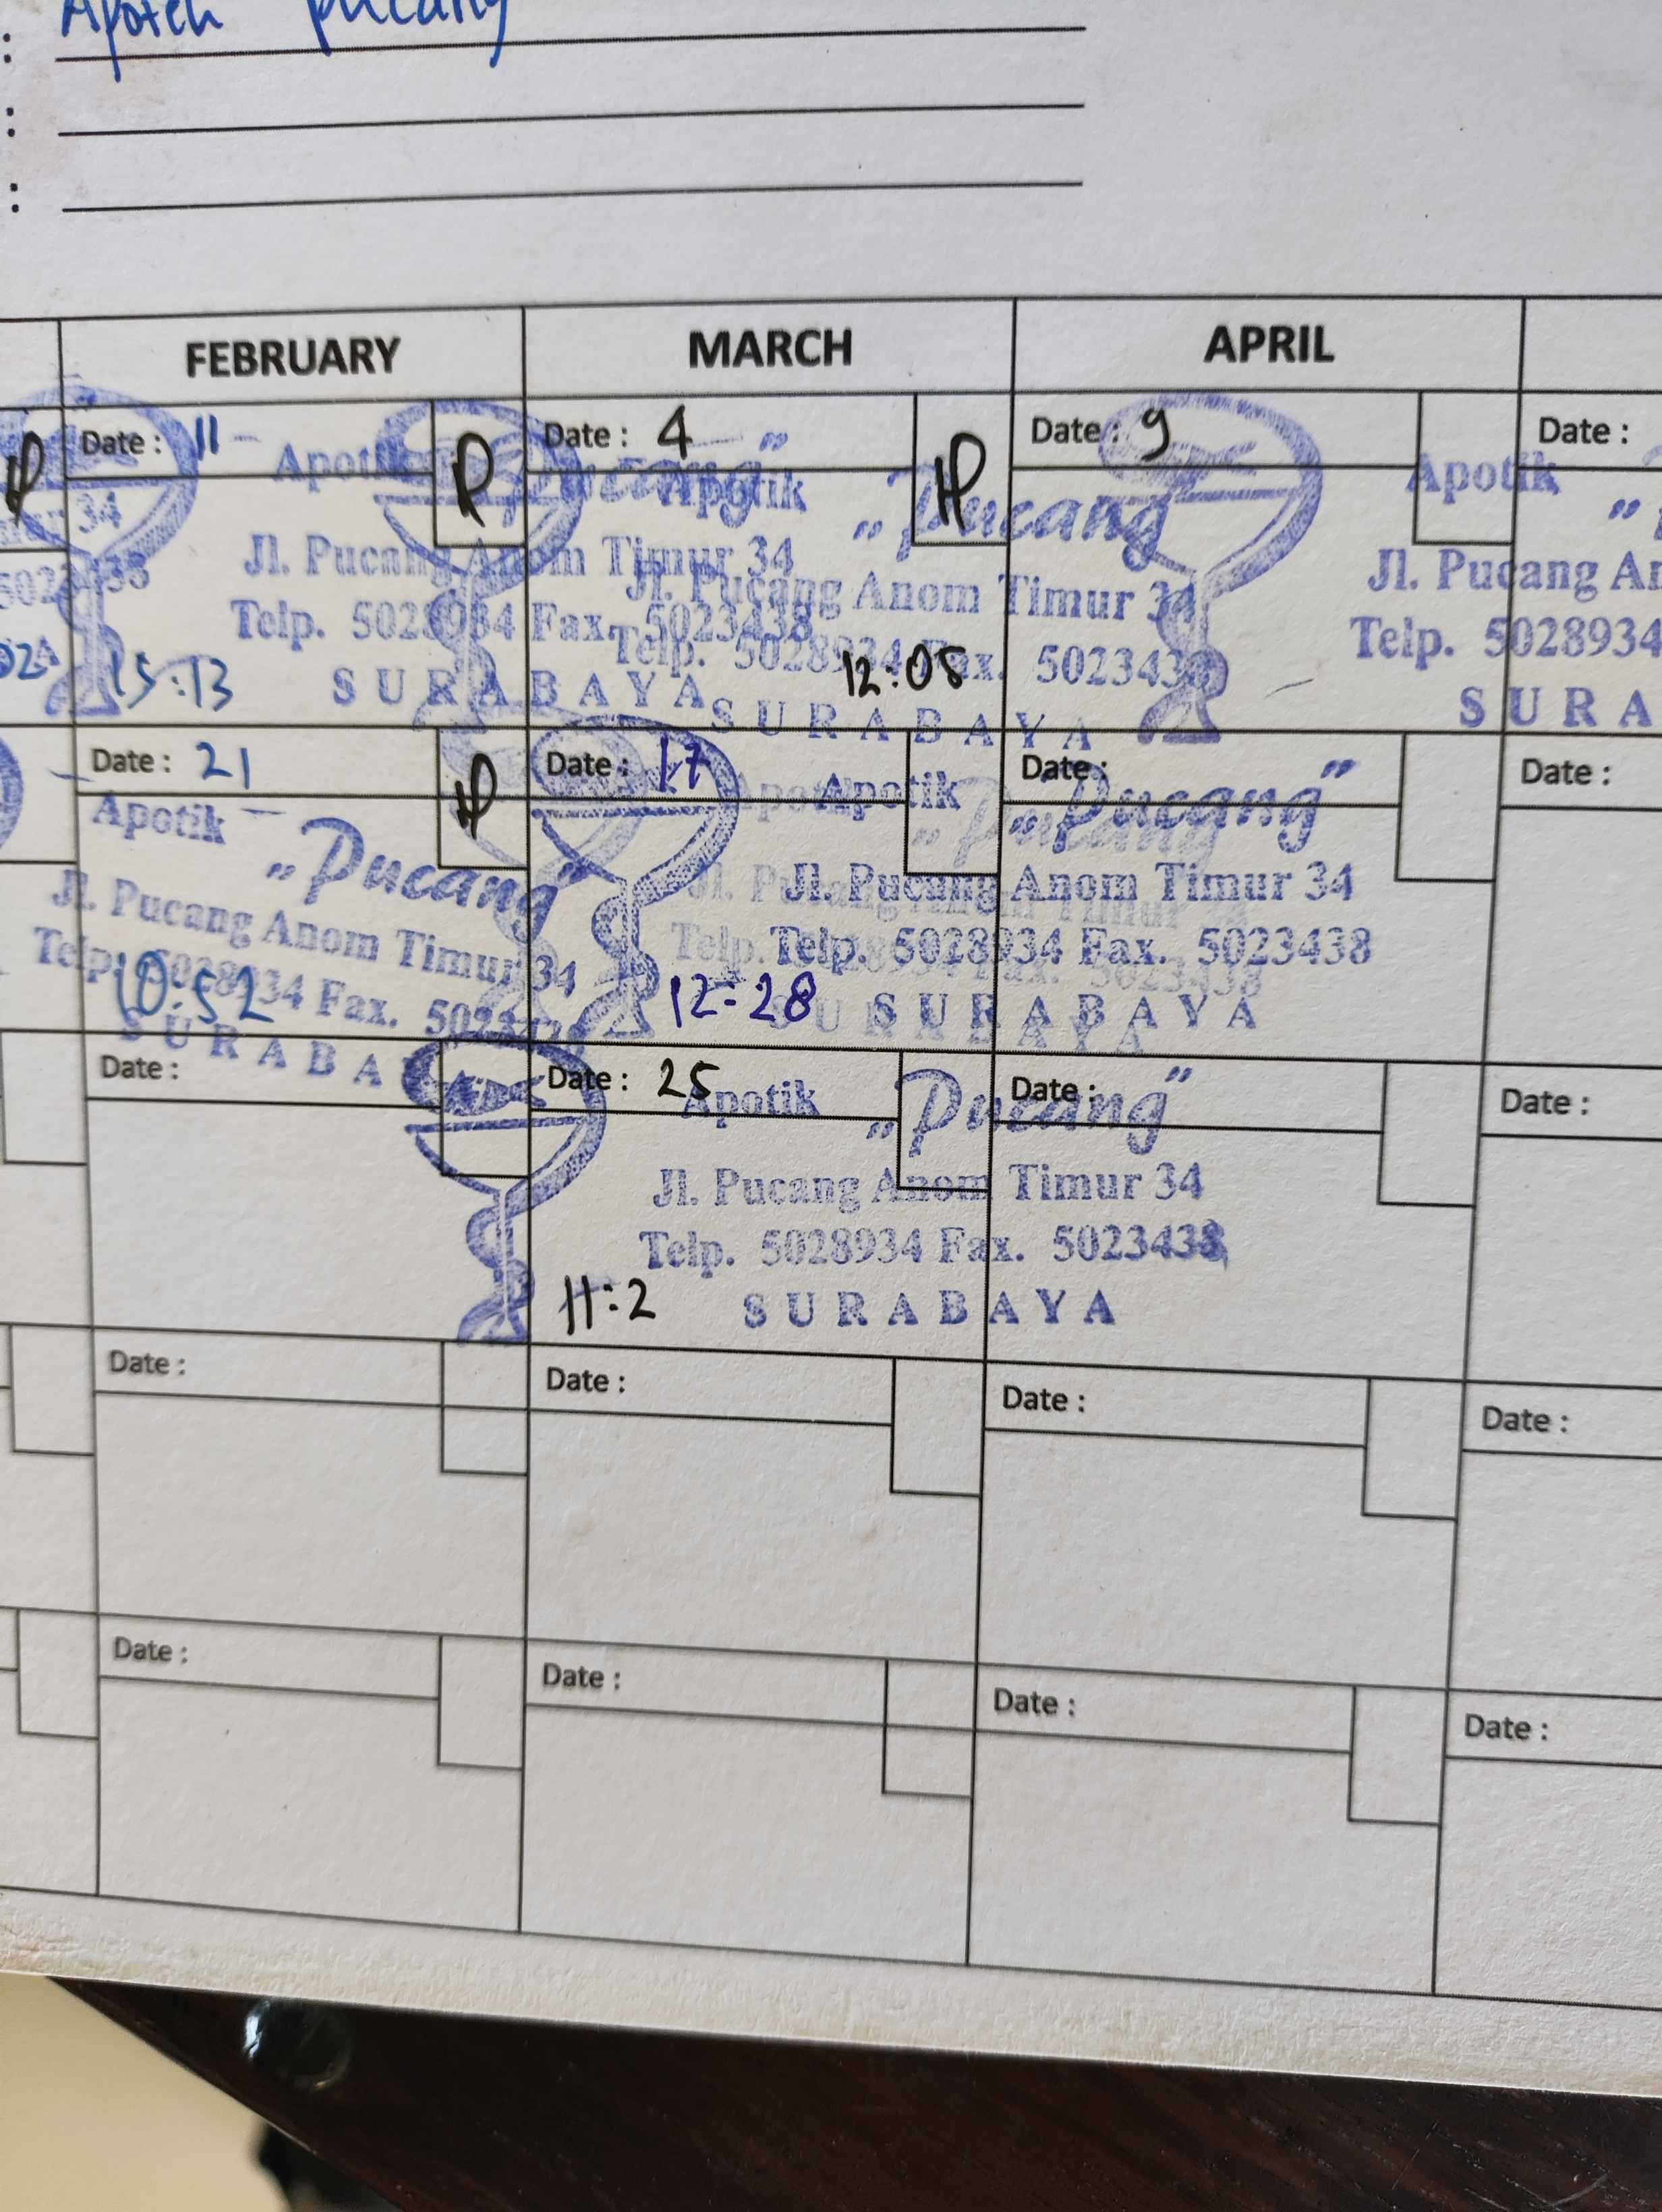 : Apotek pucang
:
:
FEBRUARY MARCH APRIL
Date : 11 Date : 4 Date : 9 Date :
Apotik "Pucang" Apotik "Pucang" Apotik
34
Jl. Pucang Anom Timur 34 Jl. Pucang Anom Timur 34 Jl. Pucang
Telp. 5028934 Fax. 5023438 Telp. 5028934 Fax. 5023438 Telp. 5028934
SURABAYA SURABAYA SURA
15:13 12:05
Date : 21 Date : 17 Date : Date :
Apotik "Pucang" Apotik "Pucang"
Jl. Pucang Anom Timur 34 Jl. Pucang Anom Timur 34
Telp. 5028934 Fax. 5023438 Telp. 5028934 Fax. 5023438
SURABA SURABAYA
10:52 12:28
Date : Date : 25 Date : Date :
Apotik "Pucang"
Jl. Pucang Anom Timur 34
Telp. 5028934 Fax. 5023438
11:2 SURABAYA
Date : Date : Date : Date :
Date : Date : Date : Date :